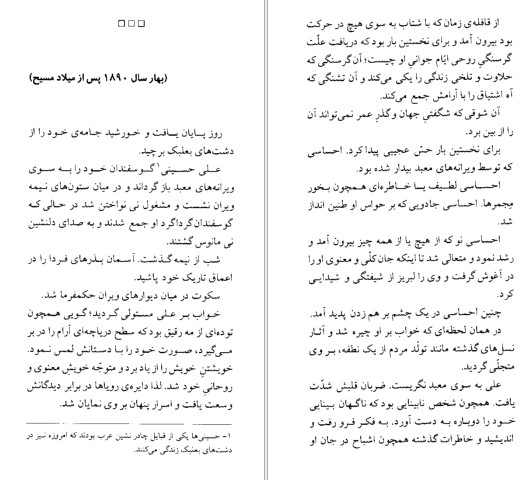 از قافله‌ی زمان که با شتاب به سوی هیچ در حرکت
بود بیرون آمد و برای نخستین بار بود که دریافت علّت
گرسنگیِ روحی ایّام جوانیِ او چیست؛ آن گرسنگی که
حلاوت و تلخی زندگی را یکی می‌کند و آن تشنگی که
آه اشتیاق را با آرامش جمع می‌کند.
آن شوقی که شگفتیِ جهان و گذرِ عمر نمی‌تواند آن
را از بین برد.
برای نخستین بار حسّ عجیبی پیدا کرد. احساسی
که توسط ویرانه‌های معبد بیدار شده بود.
احساسی لطیف یا خاطره‌ای همچون بخور
مِجمرها. احساسی جادویی که بر حواس او طنین انداز
شد.
احساسی نو که از هیچ یا از همه چیز بیرون آمد و
رشد نمود و متعالی شد تا اینکه جان کلّی و معنوی او را
در آغوش گرفت و وی را لبریز از شیفتگی و شیدایی
کرد.
چنین احساسی در یک چشم بر هم زدن پدید آمد.
در همان لحظه‌ای که خواب بر او چیره شد و آثار
نسل‌های گذشته مانند تولّد مردم از یک نطفه، بر وی
متجلّی گردید.
علی به سوی معبد نگریست. ضربان قلبش شدّت
یافت. همچون شخص نابینایی بود که ناگهان بینایی
خود را دوباره به دست آورد. به فکر فرو رفت و
اندیشید و خاطرات گذشته همچون اشباح در جان او
□ □ □
(بهار سال ۱۸۹۰ پس از میلاد مسیح)
روز پایان یافت و خورشید جامه‌ی خود را از
دشت‌های بعلبک برچید.
علی حسینی۱ گوسفندان خود را به سوی
ویرانه‌های معبد باز گرداند و در میان ستون‌های نیمه
ویران نشست و مشغول نی نواختن شد در حالی که
گوسفندان گرداگرد او جمع شدند و به صدای دلنشین
نی مانوس گشتند.
شب از نیمه گذشت. آسمان بذرهای فردا را در
اعماق تاریک خود پاشید.
سکوت در میان دیوارهای ویران حکمفرما شد.
خواب بر علی مستولی گردید؛ گویی همچون
توده‌ای از مه رقیق بود که سطح دریاچه‌ای آرام را در بر
می‌گیرد، صورت خود را با دستانش لمس نمود.
خویشتنِ خویش را از یاد برد و متوجّه خویشِ معنوی و
روحانیِ خود شد. لذا دایره‌ی رویاها در برابر دیدگانش
وسعت یافت و اسرار پنهان بر وی نمایان شد.
۱- حسینی‌ها یکی از قبایل چادر نشین عرب بودند که امروزه نیز در
دشت‌های بعلبک زندگی می‌کنند.